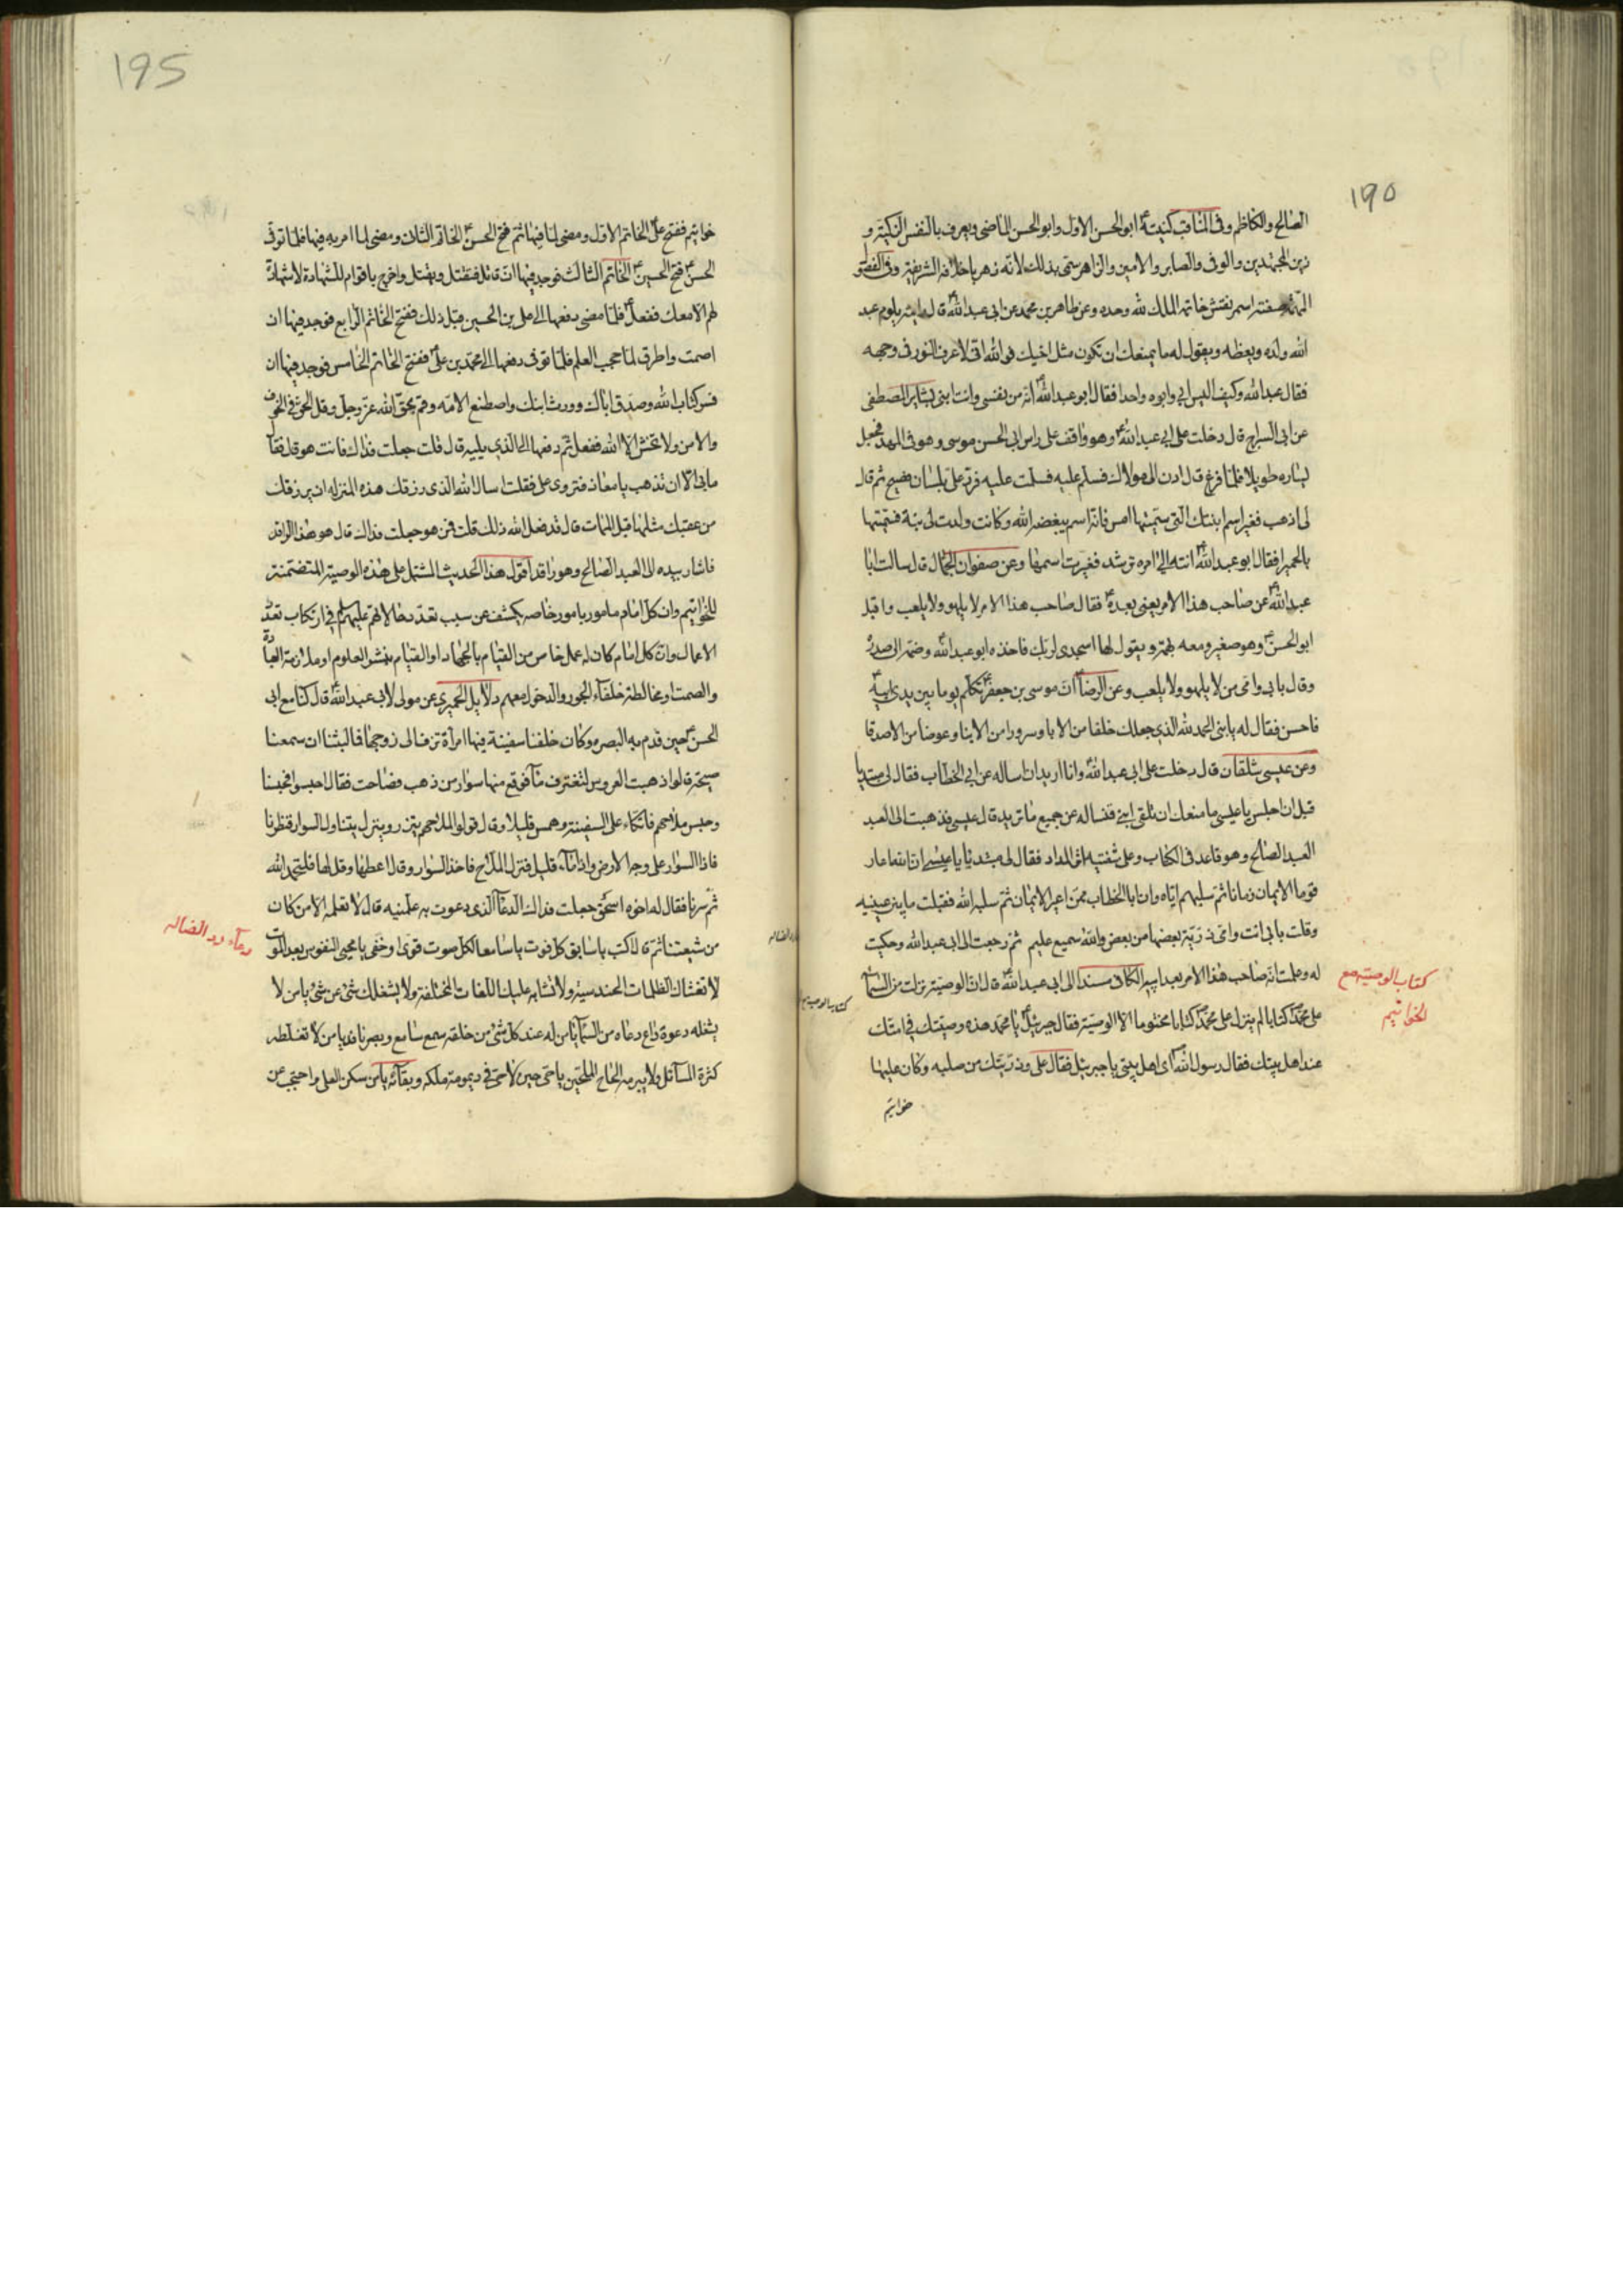 ١٩٥
الصالح والكاظم وفى المناقب كنيته ابو الحسن الاول وابو الحسن الماضى ويعرف بالنفس الزكية و
زين المجتهدين والوفى والصابر والامين والزاهر سمى بذلك لانه زهر باخلاقه الشريفة وفى الفصو
المهمه صفته اسمر نقش خاتمه الملك لله وحده وعن طاهر بن محمد عن ابى عبد الله ع قال رايته يلوم عبد
الله ولده ويعظه ويقول له ما يمنعك ان تكون مثل اخيك فو الله انى لاعرف النور فى وجهه
فقال عبد الله وكيف اليس ابى وابوه واحدا فقال ابو عبد الله ع انه من نفسى وانت ابنى بشاير المصطفى
عن ابى السراج قال دخلت على ابى عبد الله ع وهو واقف على راس ابى الحسن موسى وهو فى المهد فجعل
يساره طويلا فلما فرغ قال ادن الى مولاك فسلم عليه فسلمت عليه فرد على بلسان فصيح ثم قال
لى اذهب فغير اسم ابنتك التى سميتها امس فانه اسم يبغضه الله وكانت ولدت لى بنة فسميتها
بالحميرا فقال ابو عبد الله ع انته الى امره ترشد فغيرت اسمها وعن صفوان الجمال قال سالت ابا
عبد الله ع عن صاحب هذا الامر يعنى بعده فقال صاحب هذا الامر لا يلهو ولا يلعب واقبل
ابو الحسن ع وهو صغير ومعه بهمة ويقول لها اسجدى لربك فاخذه ابو عبد الله ع وضمه الى صدره
وقال بابى وامى من لا يلهو ولا يلعب وعن الرضا ع ان موسى بن جعفر ع تكلم يوما بين يدى ابيه ع
فاحسن فقال له يا بنى الحمد لله الذى جعلك خلفا من الابا وسرورا من الابنا وعوضا من الاصدقا
وعن عيسى شلقان قال دخلت على ابى عبد الله ع وانا اريد ان اساله عن ابى الخطاب فقال لى مبتديا
قبل ان اجلس يا عيسى ما منعك ان تلقى ابنى فتساله عن جميع ما تريد قال عيسى فذهبت الى العبد
العبد الصالح وهو قاعد فى الكتاب وعلى شفتيه اثر المداد فقال لى مبتديا يا عيسى ان الله اعار
قوما الايمان زمانا ثم سلبهم اياه وان ابا الخطاب ممن اعير الايمان ثم سلبه الله فقبلت ما بين عينيه
وقلت بابى انت وامى ذرية بعضها من بعض والله سميع عليم ثم رجعت الى ابى عبد الله وحكيت
له وعلمت انه صاحب هذا الامر بعد ابيه الكافى مسندا الى ابى عبد الله ع قال ان الوصية نزلت من السماء
على محمد كتابا لم ينزل على محمد كتابا مختوما الا الوصية فقال جبرئيل ع يا محمد هذه وصيتك فى امتك
عند اهل بيتك فقال رسول الله ص اى اهل بيتى يا جبرئيل فقال على وذريتك من صلبه وكان عليها
خواتيم
كتاب الوصية مع
الخواتيم
195
خواتيم ففتح على ع الخاتم الاول ومضى لما فيها ثم فتح الحسن ع الخاتم الثانى ومضى لما امر به فيها فلما توفى
الحسن ع فتح الحسين ع الخاتم الثالث فوجد فيها ان قاتل فتقتل وتقتل واخرج باقوام للشهادة لا شهادة
لهم الا معك ففعل ع فلما مضى دفعها الى على بن الحسين قبل ذلك ففتح الخاتم الرابع فوجد فيها ان
اصمت واطرق لما حجب العلم فلما توفى دفعها الى محمد بن على ع ففتح الخاتم الخامس فوجد فيها ان
فسر كتاب الله وصدق اباك وورث ابنك واصطنع الامه وقم بحق الله عز وجل وقل الحق فى الخوف
والامن ولا تخش الا الله ففعل ثم دفعها الى الذى يليه قال قلت جعلت فداك فانت هو قال فقال
ما بى الا ان تذهب يا معاذ فتروى على فقلت اسال الله الذى رزقك هذه المنزله ان يرزقك
من عقبك مثلها قبل الممات قال قد فعل الله ذلك قلت فمن هو جعلت فداك قال هو هذا الراقد
فاشار بيده الى العبد الصالح وهو راقد اقول هذا الحديث المشتمل على هذه الوصية المتضمنة
للخواتيم وان كل امام مامور بامور خاصه يكشف عن سبب تعدد حالاتهم عليهم السلم فى ارتكاب تعدد
الاعمال وان كل امام كان له عمل خاص من القيام بالجهاد او القيام بنشر العلوم او ملازمة العبادة
والصمت او مخالطة خلفاء الجور والدخول معهم دلايل الحميرى عن مولى لابى عبد الله ع قال كنا مع ابى
الحسن ع حين قدم به البصره وكان خلفنا سفينة فيها امرأة تزف الى زوجها فما لبثنا ان سمعنا
صيحة قالوا ذهبت العروس لتغترف ماء فوقع منها سوار من ذهب فصاحت فقال احبسوا فحبسنا
وحبس ملاحهم فاتكاء على السفينة وهمس قليلا وقال قولوا لملاحهم يتزر وينزل يتناول السوار فنظرنا
فاذا السوار على وجه الارض واذا ماء قليل فنزل الملاح فاخذ السوار وقال اعطها وقل لها فلتحمد الله
ثم سرنا فقال له اخوه اسحق جعلت فداك الدعاء الذى دعوت به علمنيه قال لا تعلمه الا من كان
من شيعتنا ثم قال اكتب يا سابق كل فوت يا سامعا لكل صوت قوى او خفى يا محيى النفوس بعد الموت
لا تغشاك الظلمات الحندسية ولا تشابه عليك اللغات المختلفة ولا يشغلك شئ عن شئ يا من لا
يشغله دعوة داع دعاه من السماء يا من له عند كل شئ من خلقه سمع سامع وبصر نافذ يا من لا تغلطه
كثرة المسائل ولا يبرمه الحاح الملحين يا حى حين لا حى فى ديمومة ملكه وبقائه يا من سكن العلى واحتجب عن
دعاء رد الضاله